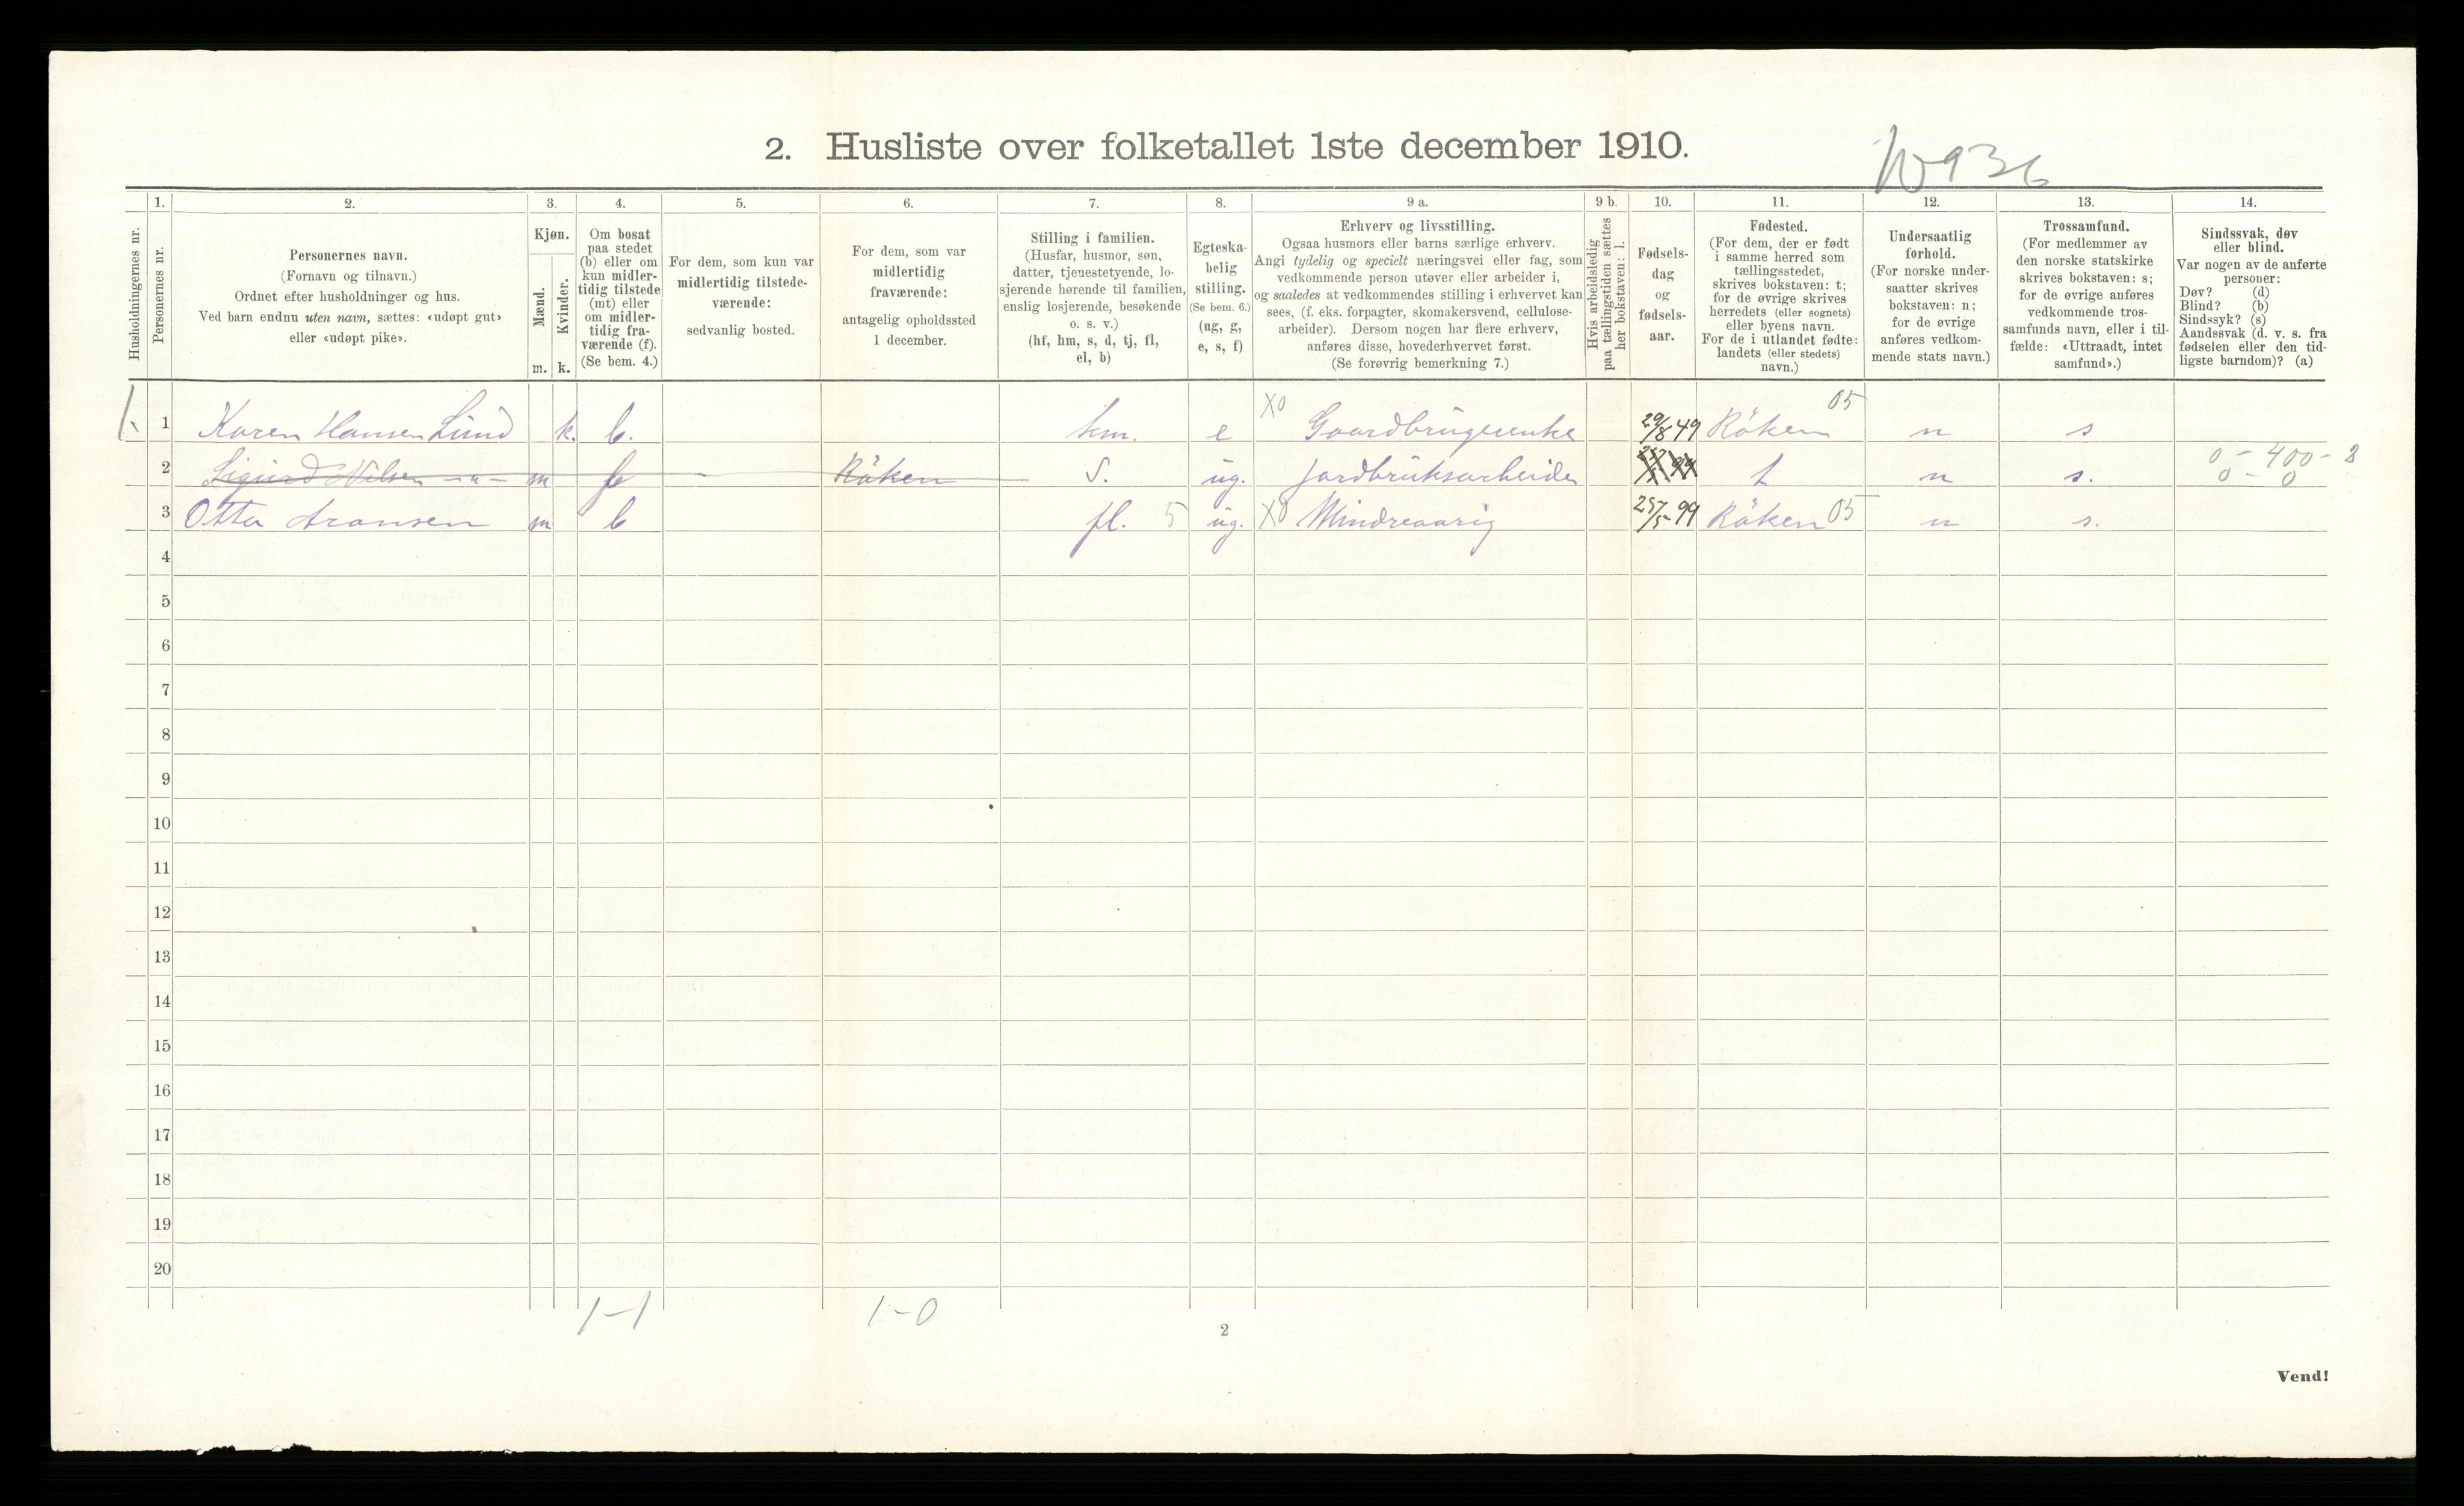 2. Husliste over folketallet 1ste december 1910.
1. 2. 3. 4. 5. 6. 7. 8. 9 a. 9 b. 10. 11. 12. 13. 14.
Husholdningernes nr.
Personernes nr.
Personernes navn.
(Fornavn og tilnavn.)
Ordnet efter husholdninger og hus.
Ved barn endnu uten navn, sættes: «udøpt gut»
eller «udøpt pike».
Kjøn.
Mænd.
Kvinder.
m. k.
Om bosat
paa stedet
(b) eller om
kun midler-
tidig tilstede
(mt) eller
om midler-
tidig fra-
værende (f).
(Se bem. 4.)
For dem, som kun var
midlertidig tilstede-
værende:
sedvanlig bosted.
For dem, som var
midlertidig
fraværende:
antagelig opholdssted
1 december.
Stilling i familien.
(Husfar, husmor, søn,
datter, tjenestetyende, lo-
sjerende hørende til familien,
enslig losjerende, besøkende
o. s. v.)
(hf, hm, s, d, tj, fl,
el, b)
Egteska-
belig
stilling.
(Se bem. 6.)
(ug, g,
e, s, f)
Erhverv og livsstilling.
Ogsaa husmors eller barns særlige erhverv.
Angi tydelig og specielt næringsvei eller fag, som
vedkommende person utøver eller arbeider i,
og saaledes at vedkommendes stilling i erhvervet kan
sees, (f. eks. forpagter, skomakersvend, cellulose-
arbeider). Dersom nogen har flere erhverv,
anføres disse, hovederhvervet først.
(Se forøvrig bemerkning 7.)
Hvis arbeidsledig
paa tællingstiden sættes
her bokstaven: l.
Fødsels-
dag
og
fødsels-
aar.
Fødested.
(For dem, der er født
i samme herred som
tællingsstedet,
skrives bokstaven: t;
for de øvrige skrives
herredets (eller sognets)
eller byens navn.
For de i utlandet fødte:
landets (eller stedets)
navn.)
Undersaatlig
forhold.
(For norske under-
saatter skrives
bokstaven: n;
for de øvrige
anføres vedkom-
mende stats navn.)
Trossamfund.
(For medlemmer av
den norske statskirke
skrives bokstaven: s;
for de øvrige anføres
vedkommende tros-
samfunds navn, eller i til-
fælde: «Uttraadt, intet
samfund».)
Sindssvak, døv
eller blind.
Var nogen av de anførte
personer:
Døv? (d)
Blind? (b)
Sindssyk? (s)
Aandssvak (d. v. s. fra
fødselen eller den tid-
ligste barndom)? (a)
1 Karen Hansen Lund k. b. hm. e X0 Gaardbrugerenke 29/8 49 Röken 05 n s
2 Sigurd Nilsen -"- m Röken s. ug. Jordbruksarbeider t n s. 0 - 400 - 3
0 - 0
3 Otto Aronsen m b fl. 5 ug. X0 Mindreaarig 25/5 99 Röken 05 n s.
4
5
6
7
8
9
10
11
12
13
14
15
16
17
18
19
20
1-1 1-0
2
Vend!